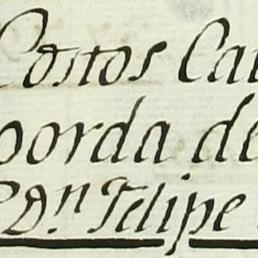 Costos Ca
oorda de
Dⁿ Felipe